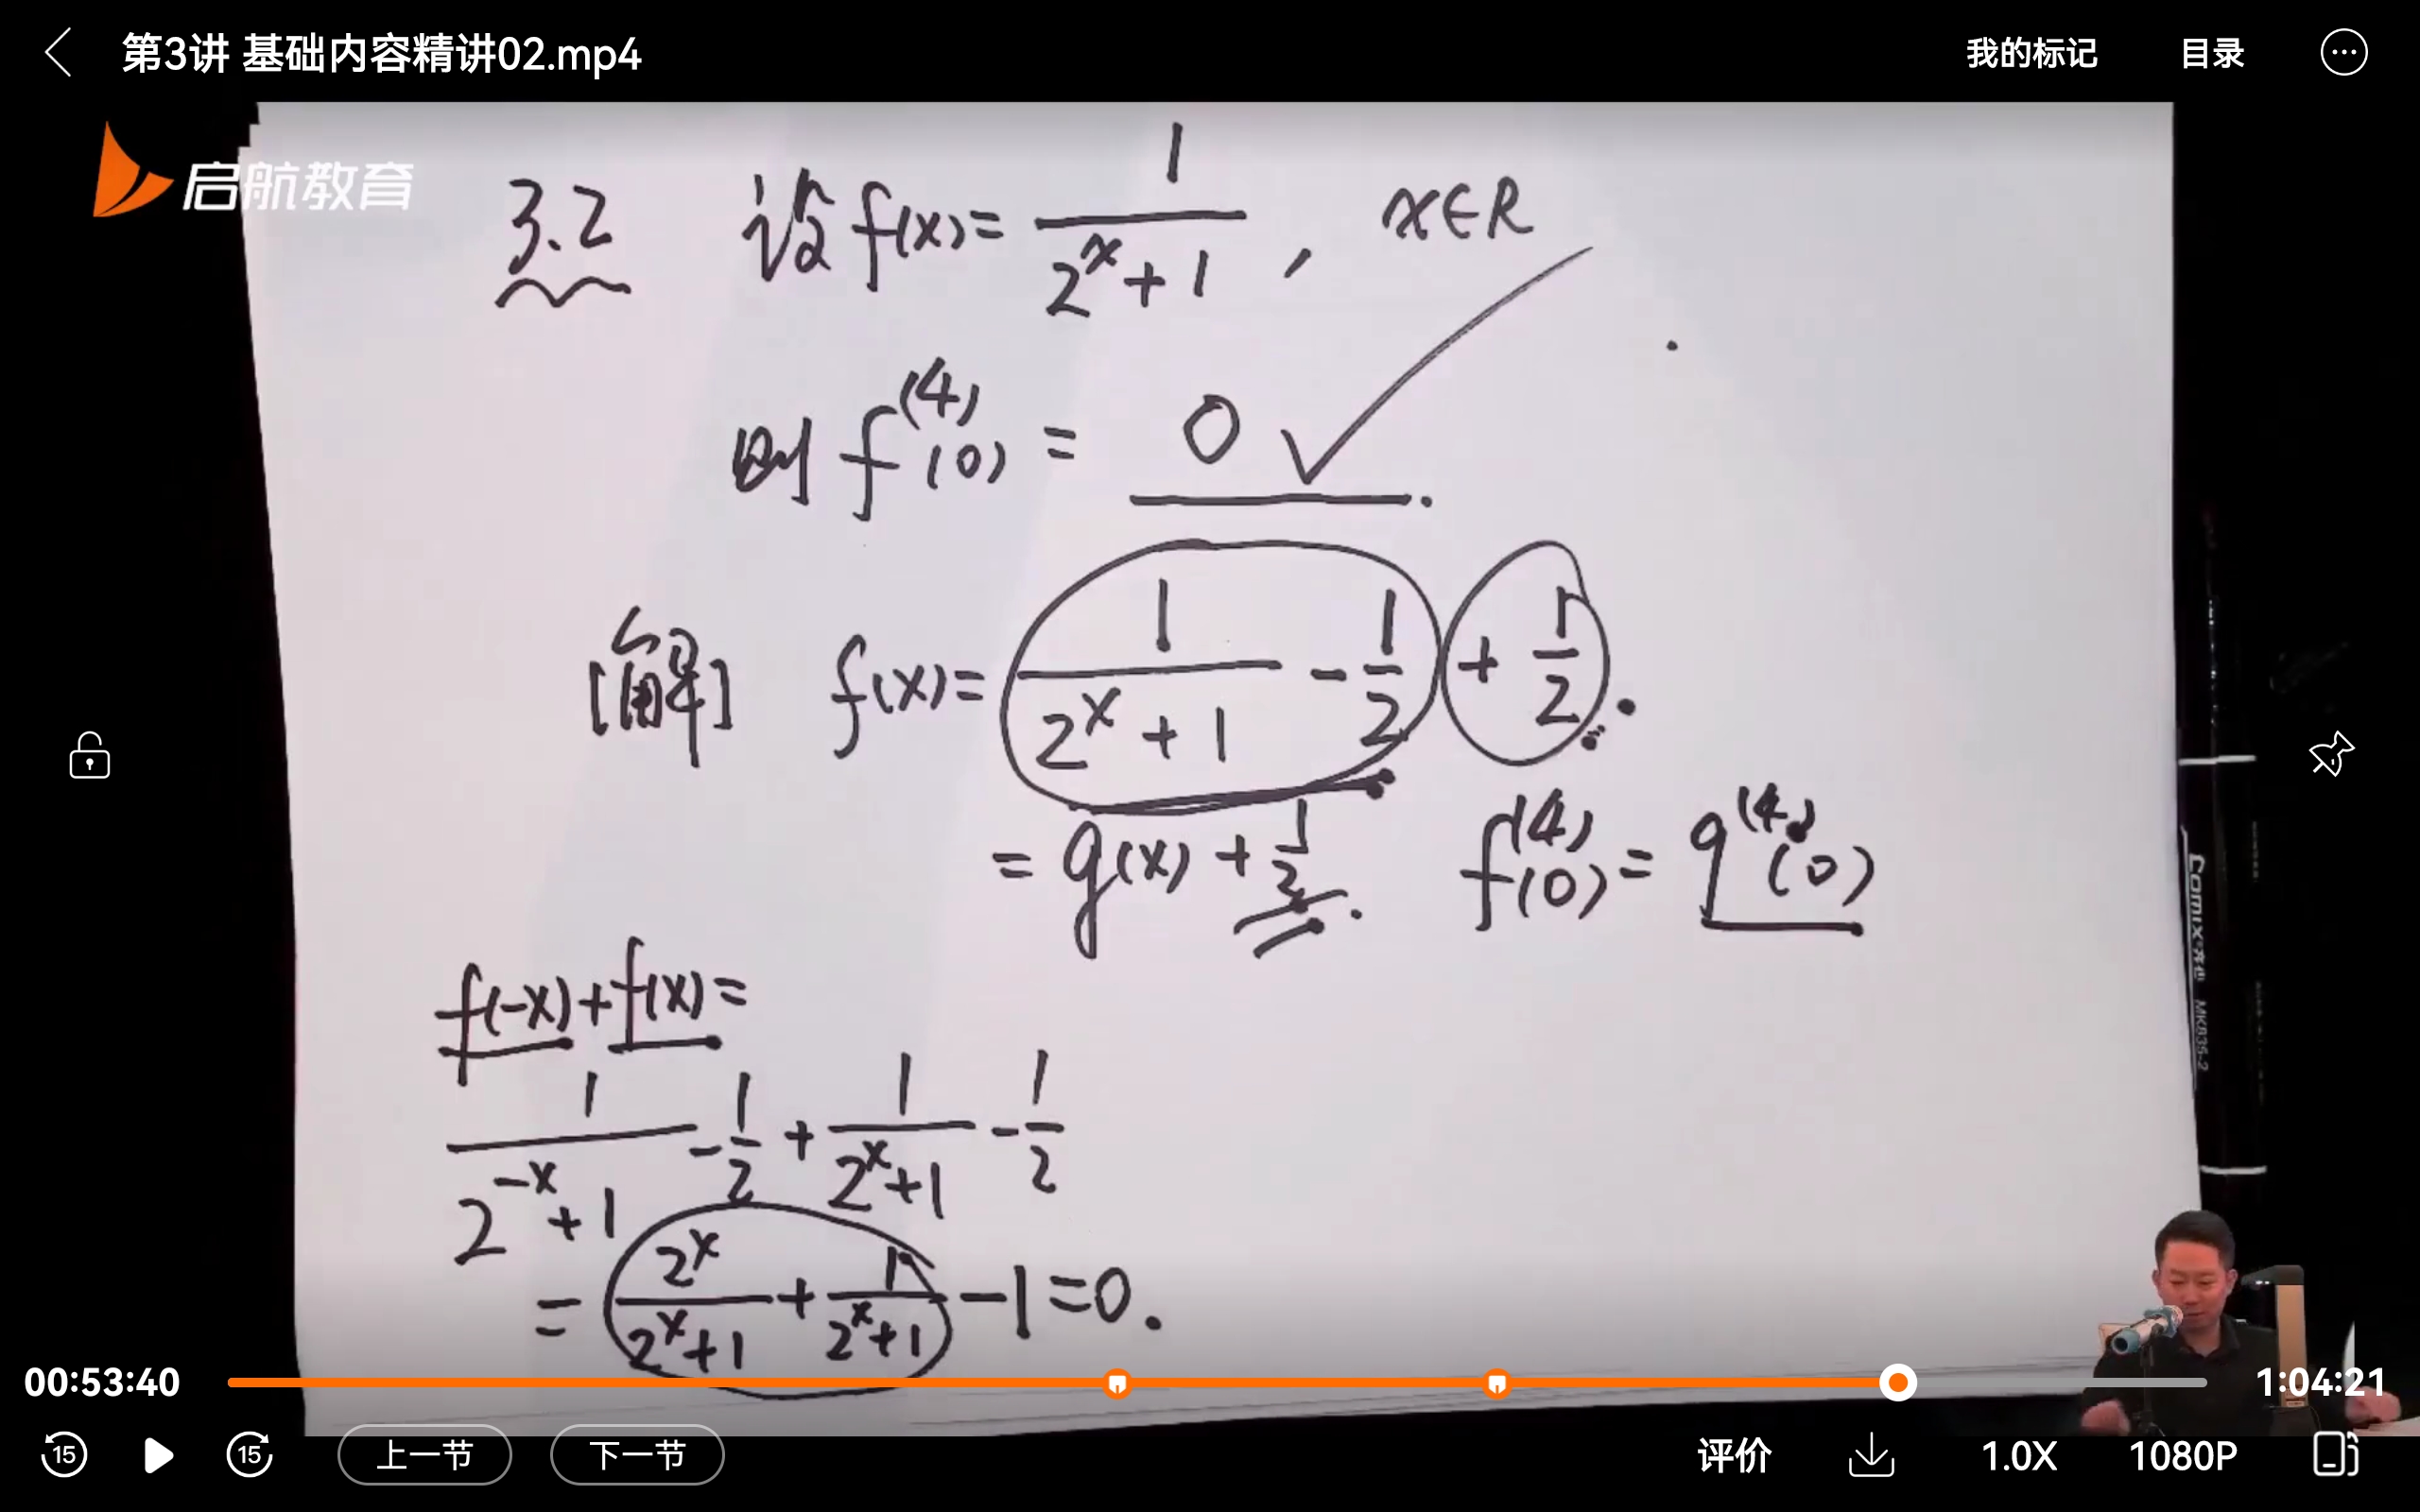 第3讲 基础内容精讲02.mp4
我的标记
目录
启航教育
3.2 设 f(x)= 1/(2^x+1) , x∈R
则 f^(4)(0) = 0 ✓.
[解] f(x)= 1/(2^x+1) - 1/2 + 1/2.
= g(x) + 1/2. f^(4)(0) = g^(4)(0)
f(-x)+f(x)=
1/(2^-x+1) - 1/2 + 1/(2^x+1) - 1/2
= 2^x/(2^x+1) + 1/(2^x+1) - 1 = 0.
Comix·齐心 MK835-2
00:53:40
1:04:21
15
15
上一节
下一节
评价
1.0X
1080P